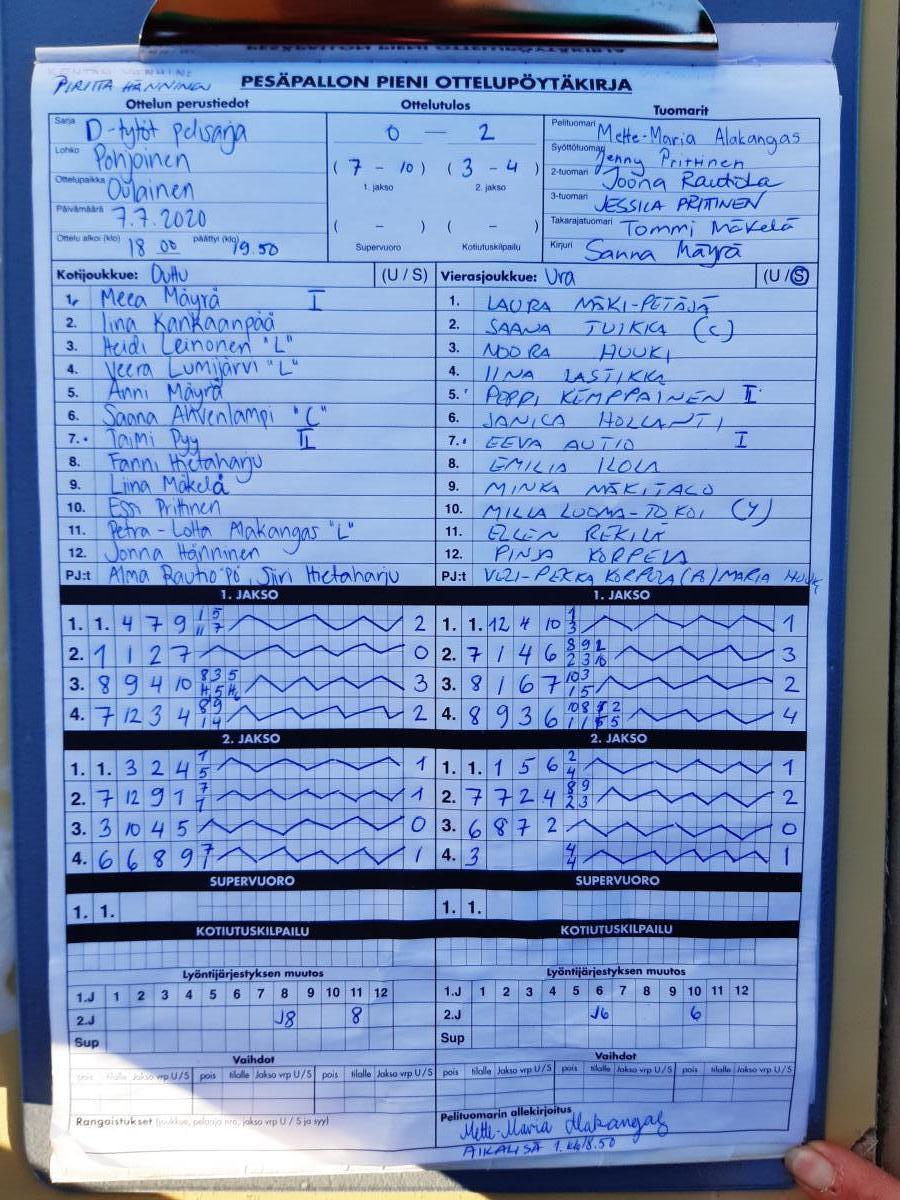 KENTÄN VANHIN:
PIRITTA HÄNNINEN
PESÄPALLON PIENI OTTELUPÖYTÄKIRJA
Ottelun perustiedot
Sarja D-tytöt pelisarja
Lohko Pohjoinen
Ottelupaikka Oulainen
Päivämäärä 7.7.2020
Ottelu alkoi (klo) 18 00 päättyi (klo) 19.50
Ottelutulos
0 — 2
( 7 - 10 ) ( 3 - 4 )
1. jakso 2. jakso
( - ) ( - )
Supervuoro Kotiutuskilpailu
Tuomarit
Pelituomari Mette-Maria Alakangas
Syöttötuomari Jenny Prittinen
2-tuomari Joona Rautiola
3-tuomari JESSILA PRITTINEN
Takarajatuomari Tommi Mäkelä
Kirjuri Sanna Mäyrä
Kotijoukkue: Outu (U / S)
1. Meea Mäyrä I
2. Iina Kankaanpää
3. Heidi Leinonen "L"
4. Veera Lumijärvi "L"
5. Anni Mäyrä
6. Saana Ahvenlampi "C"
7. Taimi Pyy II
8. Fanni Hietaharju
9. Liina Mäkelä
10. Essi Prittinen
11. Petra-Lotta Alakangas "L"
12. Jonna Hänninen
PJ:t Alma Rautio Pö, Siiri Hietaharju
Vierasjoukkue: Ura (U / S)
1. LAURA MÄKI-PETÄJÄ
2. SAANA TUIKKA (C)
3. NOORA HUUKI
4. IINA LASTIKKA
5. PEPPI KEMPPAINEN II
6. JANICA HOLLANTI
7. EEVA AUTIO I
8. EMILIA ILOLA
9. MINKA MÄKITALO
10. MILLA LUOMA-TOKOI (Y)
11. ELLEN REKILÄ
12. PINJA KORPELA
PJ:t VELI-PEKKA KORPELA (A) MARIA HUUKI
1. JAKSO
1. 1. 4 7 9 1 5 11 7 2
2. 1 1 2 7 0
3. 8 9 4 10 8 3 5 3
4. 7 12 3 4 8 9 1 4 2
1. JAKSO
1. 1. 12 4 10 1 3 1
2. 7 1 4 6 8 9 2 2 3 10 3
3. 8 1 6 7 10 3 1 5 2
4. 8 9 3 6 4
2. JAKSO
1. 1. 3 2 4 1 5 1
2. 7 12 9 1 7 1 1
3. 3 10 4 5 0
4. 6 6 8 9 7 1
2. JAKSO
1. 1. 1 5 6 2 4 1
2. 7 7 2 4 8 9 2 3 2
3. 6 8 7 2 0
4. 3 4 4 1
SUPERVUORO
1. 1.
SUPERVUORO
1. 1.
KOTIUTUSKILPAILU
KOTIUTUSKILPAILU
Lyöntijärjestyksen muutos
1.J 1 2 3 4 5 6 7 8 9 10 11 12
2.J J8 8
Sup
Lyöntijärjestyksen muutos
1.J 1 2 3 4 5 6 7 8 9 10 11 12
2.J J6 6
Sup
Vaihdot
pois tilalle Jakso vrp U/S pois tilalle Jakso vrp U/S pois tilalle Jakso vrp U/S
Vaihdot
pois tilalle Jakso vrp U/S pois tilalle Jakso vrp U/S pois tilalle Jakso vrp U/S
Rangaistukset (joukkue, pelaaja nro, jakso vrp U / S ja syy)
Pelituomarin allekirjoitus
Mette-Maria Alakangas
AIKALISÄ 1. klo 18.50